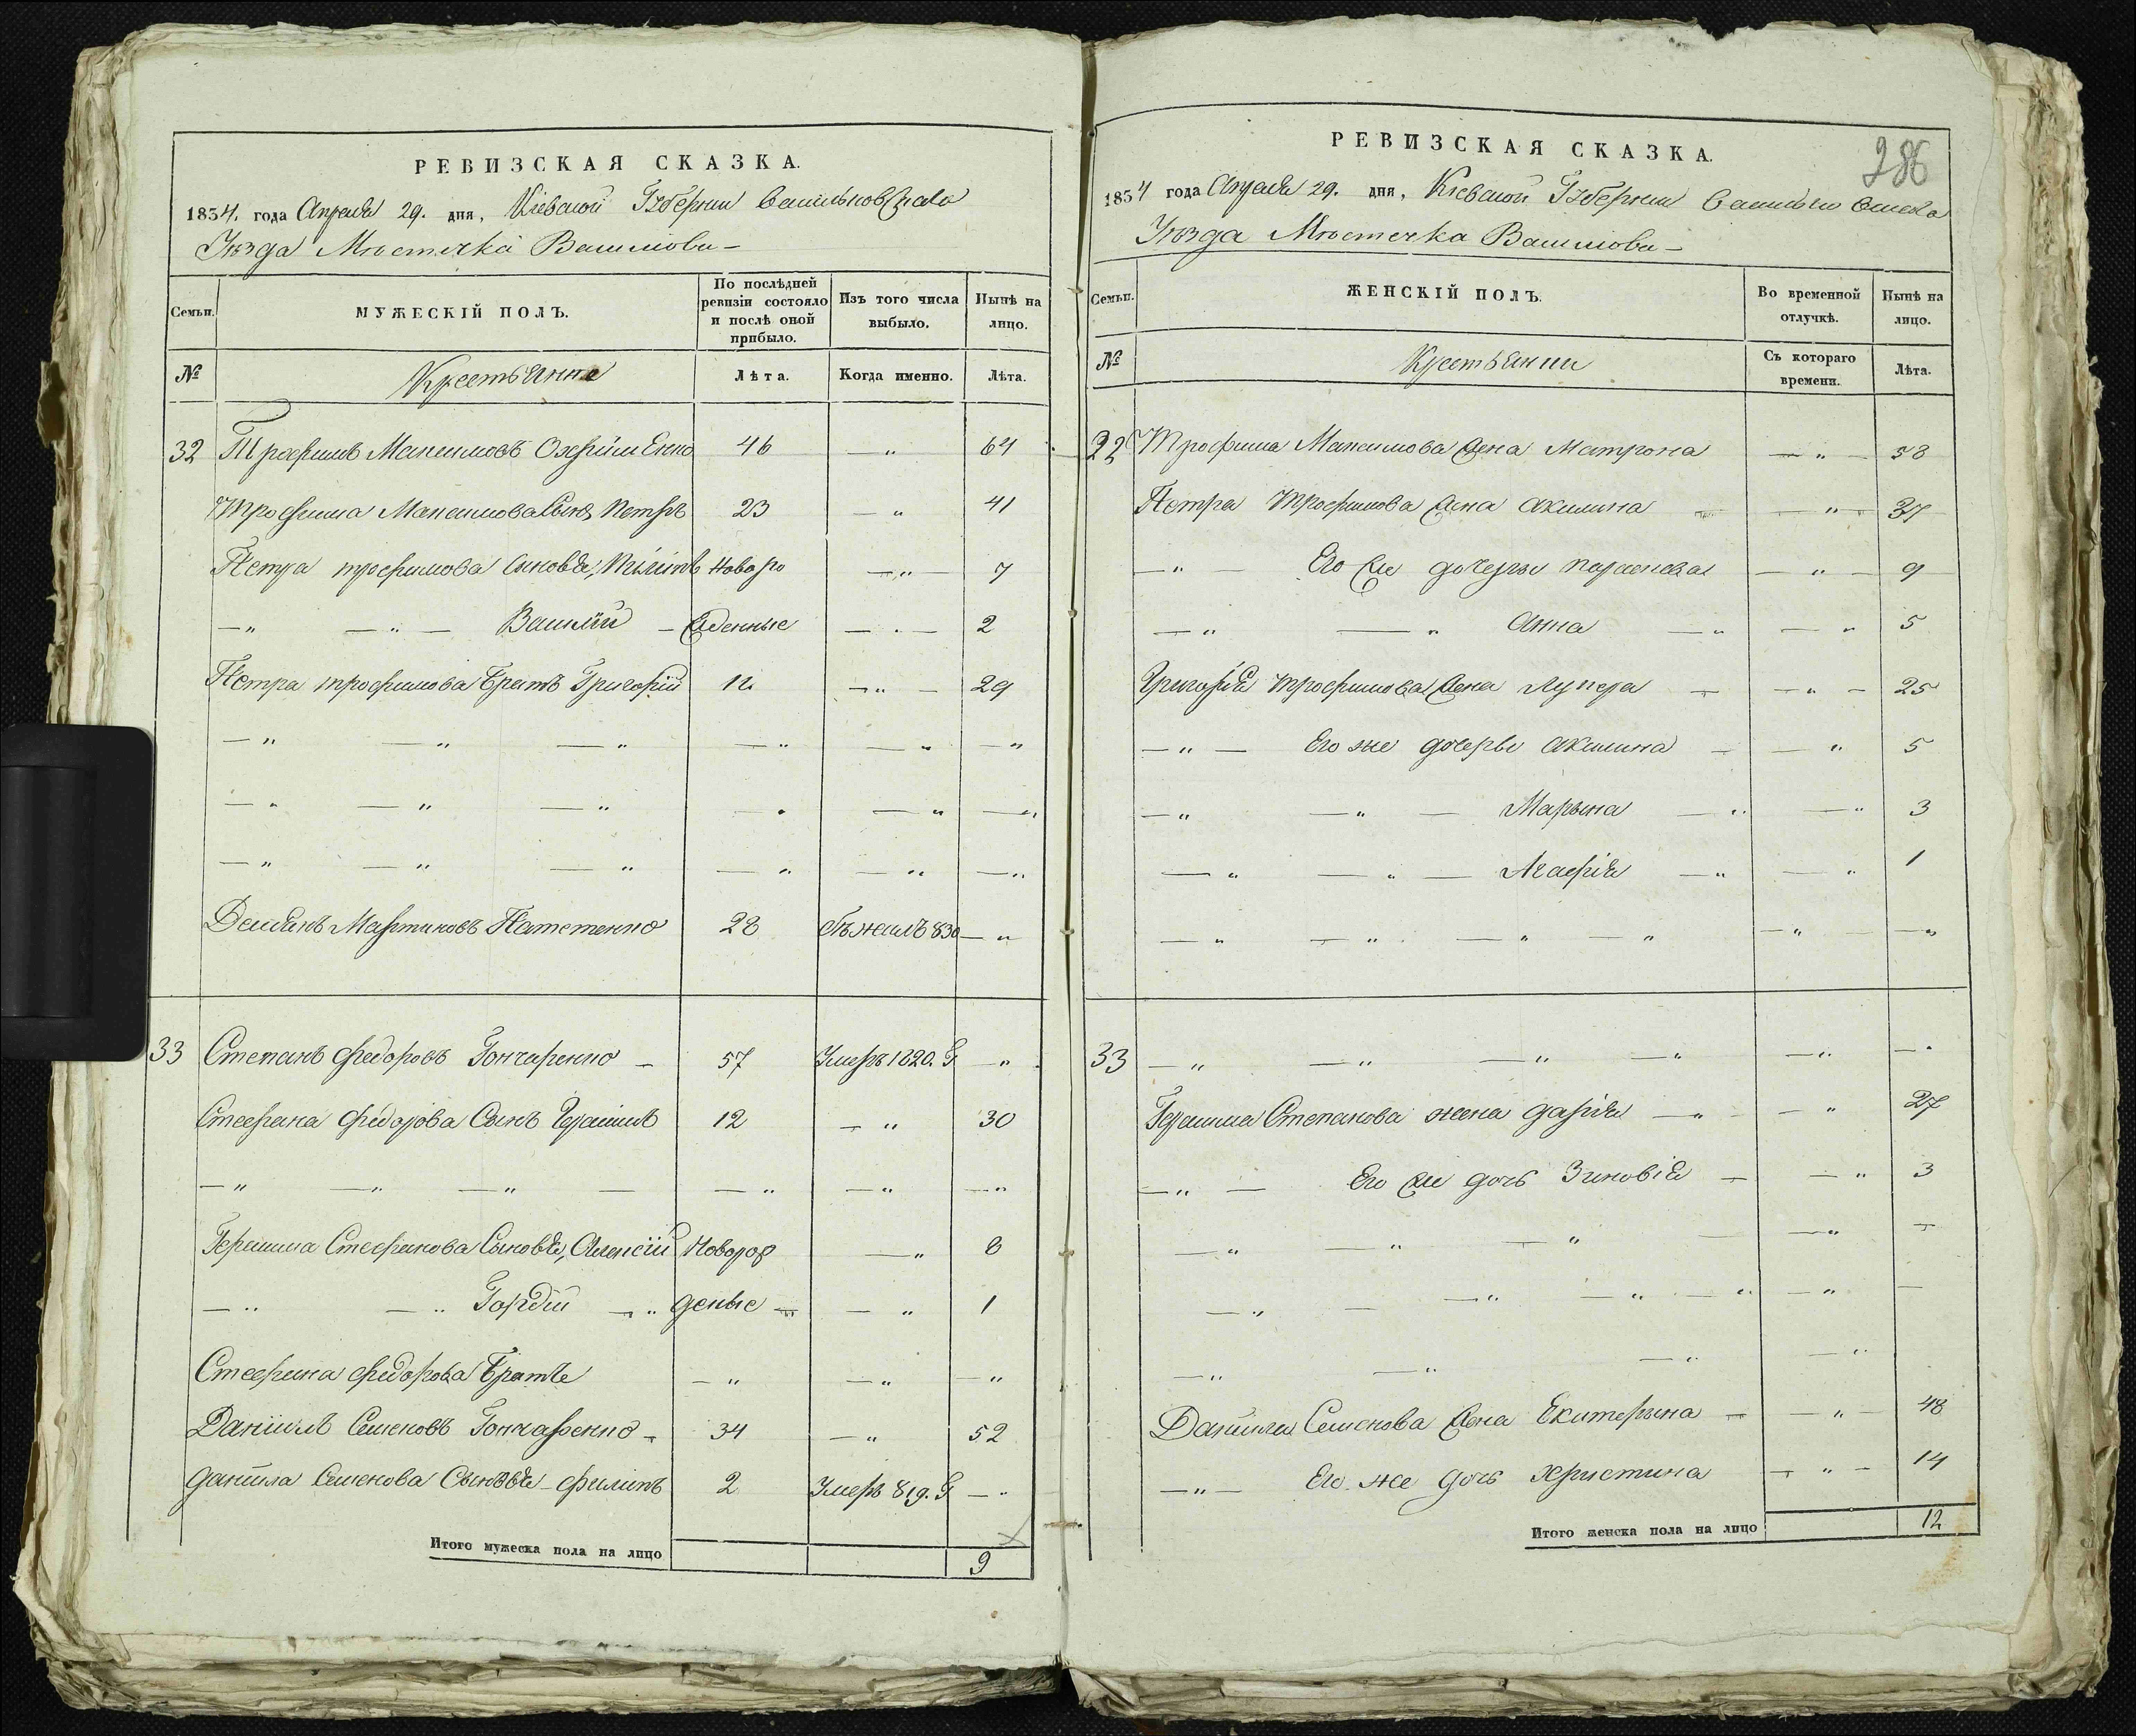 РЕВИЗСКАЯ СКАЗКА.
1834. года Апреля 29. дня, Кіевской Губерніи Васильковскаго
Уѣзда Мѣстечка
Семьи.
МУЖЕСКІЙ ПОЛЪ.
По послѣдней ревизіи состояло и послѣ оной прибыло.
Изъ того числа выбыло.
Нынѣ на лицо.
№ Крестьянне Лѣта. Когда именно. Лѣта.
32 Трофимъ Максимовъ 46 — " 64
Трофима Максимова Сынъ Петръ 23 — " 41
Петра трофимова сыновья, Новоро — " 7
— " — " — Василій — жденные — " — 2
Петра трофимова Братъ Григорій 12 — " — 29
— " — " — " — " — " — "
— " — " — " — " — " — "
— " — " — " — " — " — "
Демьянъ Мартиновъ 28 бѣжалъ 830 — "
33 Степанъ Федоровъ Гончаренко — 57 Умеръ 1820. Г — "
Стефана Федорова Сынъ Герасимъ 12 — " 30
— " — " — " — — " — " — "
Герасима Стефанова Сыновья, Алексій Новорож — " 8
— " — " Гордій — " деные — — " 1
Стефана Федорова Братья — " — " — "
Даніилъ Семеновъ Гончаренко — 34 — " 52
Данила Семенова Сыновья — Филипъ 2 Умеръ 819. Г — "
Итого мужеска пола на лицо 9
РЕВИЗСКАЯ СКАЗКА.
286
1834 года Апреля 29. дня, Кіевской Губерніи
Уѣзда Мѣстечка
Семьи.
ЖЕНСКІЙ ПОЛЪ.
Во временной отлучкѣ.
Нынѣ на лицо.
№ Крестьянки Съ котораго времени. Лѣта.
32 Трофима Максимова жена Матрона — " — 58
Петра Трофимова жена Акилина — — " — 37
— " — Его же дочерьи — " — 9
— " — " Анна — " — " 5
Григорія Трофимова жена — — " — 25
— " — Его же дочерьи Акилина — — " 5
— " — " — Марьяна — " — " 3
— " — " — Агафія — " — " 1
— " — " — " — " — " — — "
33 — " — " — " — " — " — "
Герасима Степанова жена Дарія — " — " 27
— " — Его же дочь Зиновія — — " 3
— " — " — " — — " —
— " — — " — " — " — " —
— " — " — " — "
Данила Семенова жена Екатерына — — " — 48
— " — Его же дочь Христина — " — 14
Итого женска пола на лицо 12